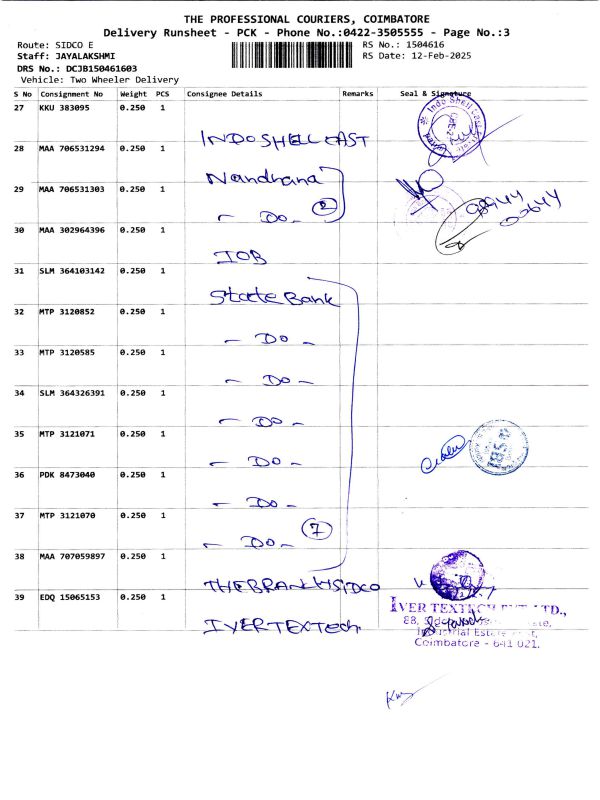 THE PROFESSIONAL COURIERS, COIMBATORE
Delivery Runsheet - PCK - Phone No.:0422-3505555 - Page No.:3
Route: SIDCO E
RS No.: 1504616
Staff: JAYALAKSHMI
RS Date: 12-Feb-2025
DRS No.: DCJB150461603
Vehicle: Two Wheeler Delivery
S No Consignment No Weight PCS Consignee Details Remarks Seal & Signature
27 KKU 383095 0.250 1 INDOSHELL CAST
28 MAA 706531294 0.250 1 Nandhana
29 MAA 706531303 0.250 1 - Do - 2
30 MAA 302964396 0.250 1 IOB
31 SLM 364103142 0.250 1 State Bank
32 MTP 3120852 0.250 1 - Do -
33 MTP 3120585 0.250 1 - Do -
34 SLM 364326391 0.250 1 - Do -
35 MTP 3121071 0.250 1 - Do -
36 PDK 8473040 0.250 1 - Do -
37 MTP 3121070 0.250 1 - Do - 7
38 MAA 707059897 0.250 1 THE BRANCH SIDCO
39 EDQ 15065153 0.250 1 IVER TEXTech
Indo Shell Cast
IVER TEXTECH PVT LTD.,
88,
Industrial Estate
Coimbatore - 641 021.